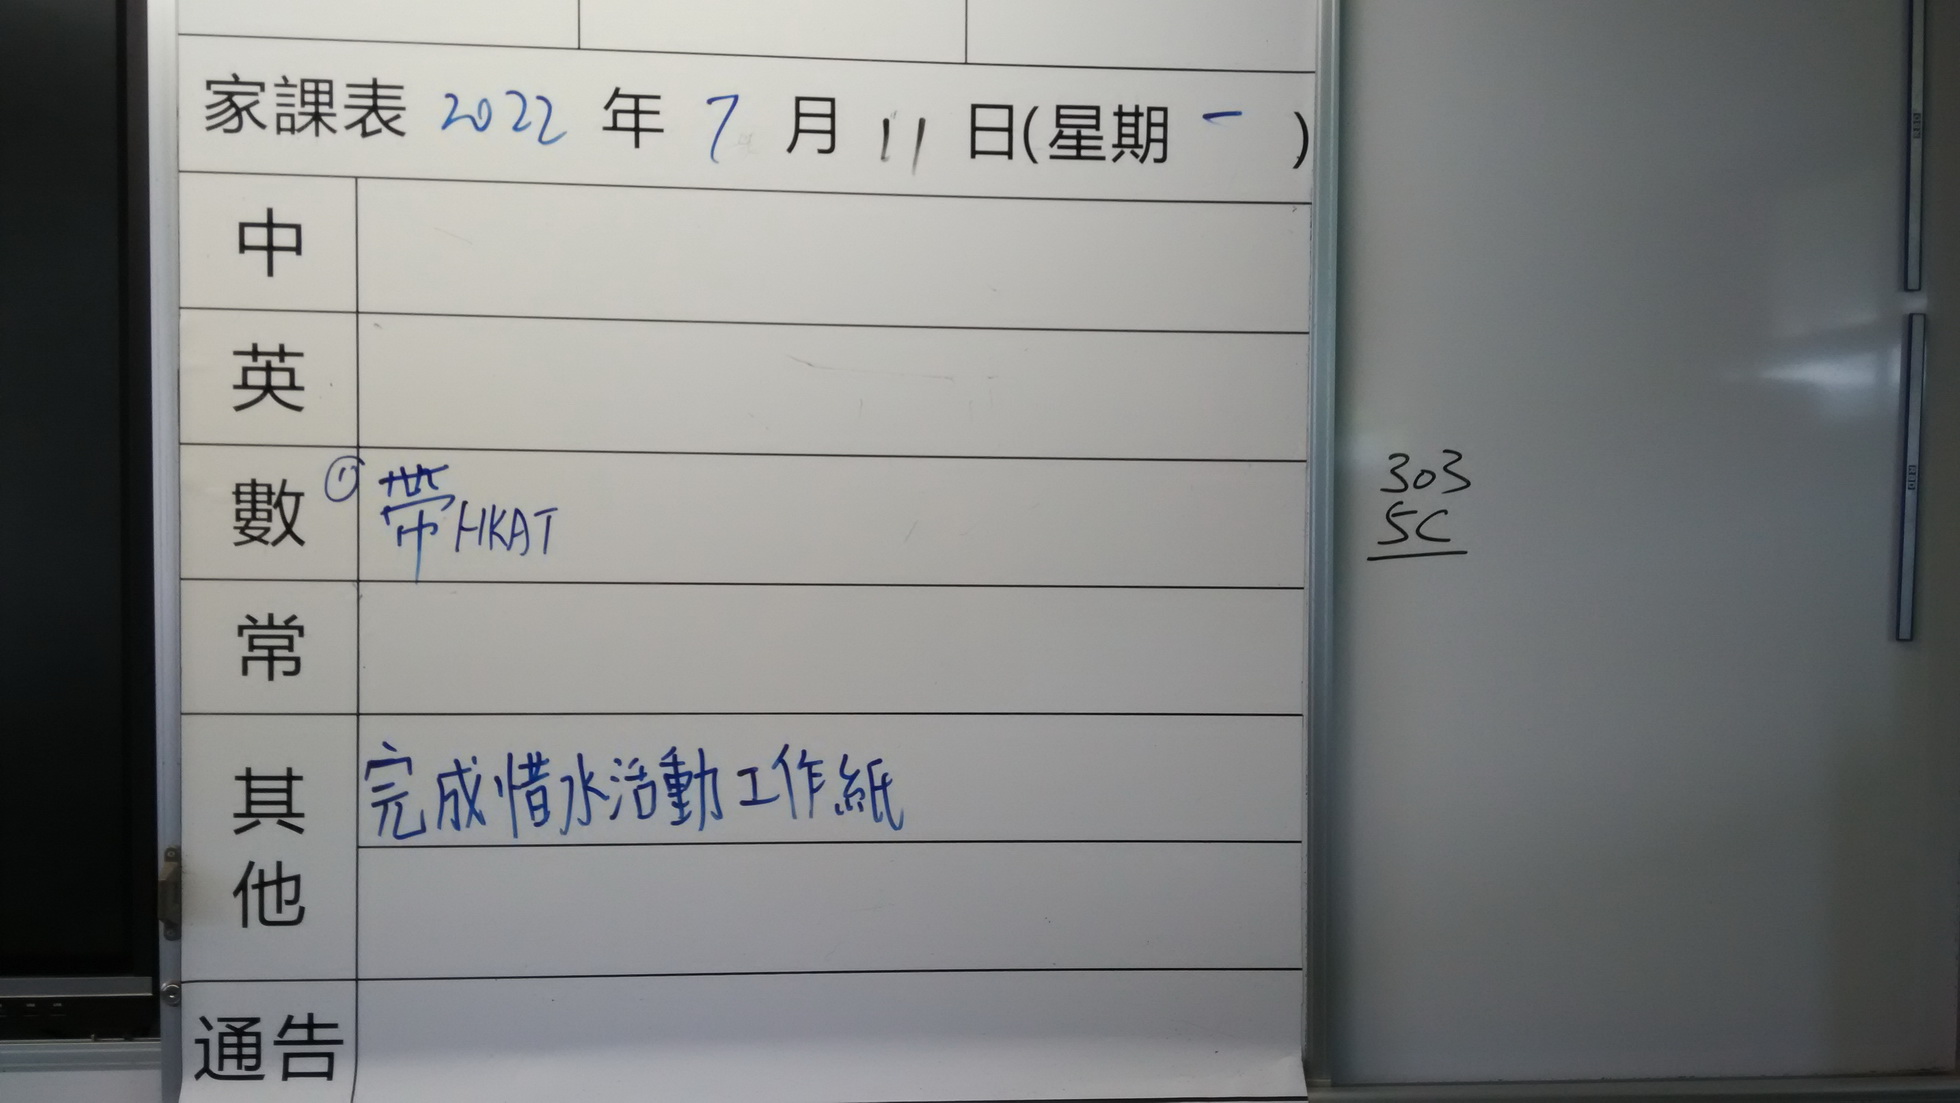 家課表 2022 年 7 月 11 日(星期 一 )
中
英
數 ① 帶HKAT
常
其他 完成惜水活動工作紙
通告
303
5C